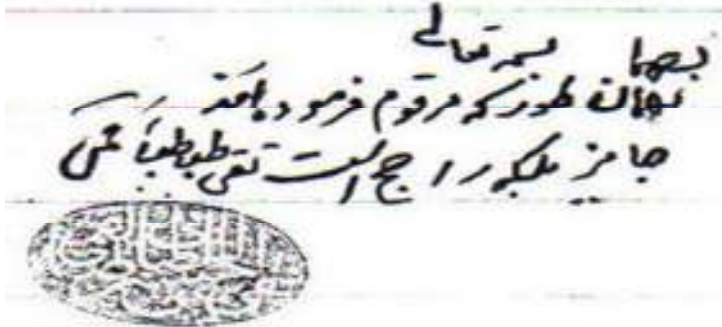 بسمه تعالی
بهمان طوریکه مرقوم فرموده‌اند
جایز بلکه راجح است تقی طباطبائی قمی